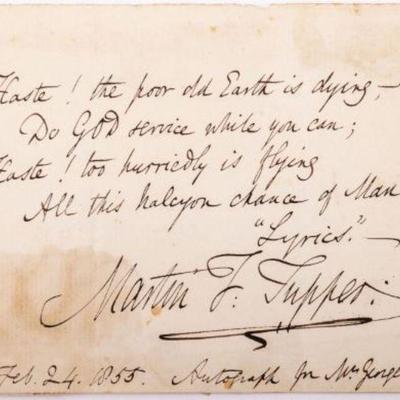 Haste! the poor old Earth is dying,—
Do GOD service while you can;
Haste! too hurriedly is flying
All this halcyon chance of Man
"Lyrics."—
Martin F. Tupper.
Feb. 24. 1855. Autograph for Mr George